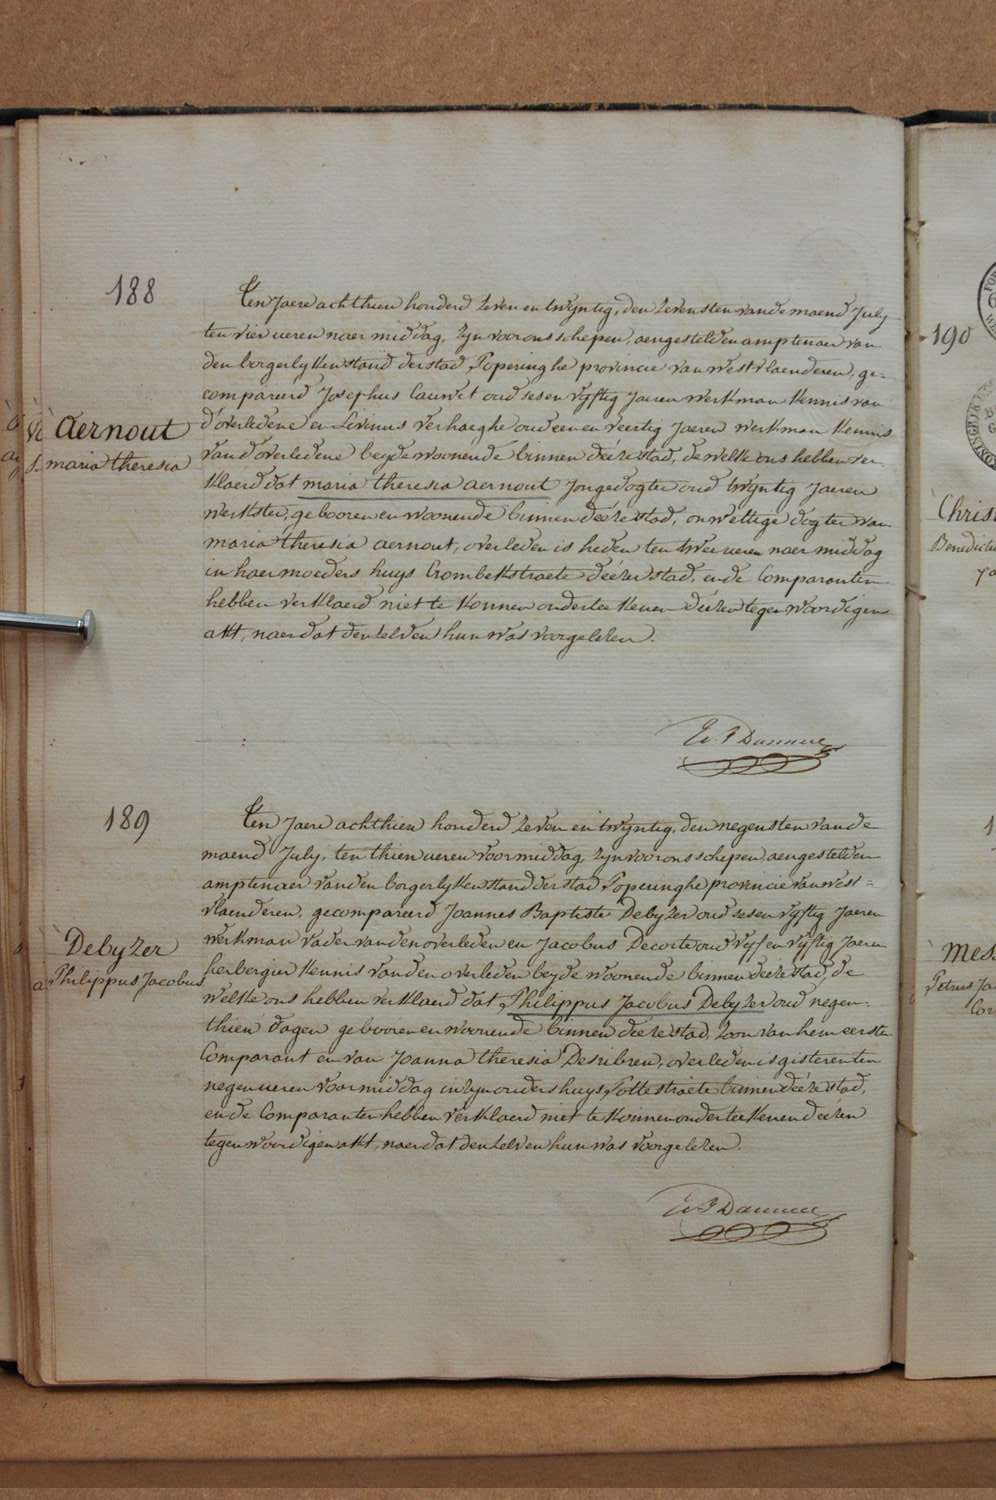 188
Aernout
maria theresia
Ten Jaere achthien honderd zeven en twyntig, den zevensten van de maend July
ten vier ueren naer middag, zyn voor ons schepen, aengestelden amptenaer van
den borgerlyken stand der stad Poperinghe provincie van westvlaenderen, ge-
compareerd Josephus Lauwet oud ses en vyftig Jaeren werkman Kennis van
d'overledene en Livinus Verhaeghe oud een en veertig Jaeren werkman Kennis
van d'overledene beyde woonende binnen deéze stad, de welke ons hebben ver-
klaerd dat maria theresia aernout Jongedogter oud twyntig Jaeren
werkster, gebooren en woonende binnen deéze stad, onwettige dogter van
maria theresia aernout, overleden is heden ten twee ueren naer middag
in haer moeders huys Crombekstraete deézer stad, ende Comparanten
hebben verklaerd niet te konnen onderteekenen deézen tegenwoordigen
akt, naer dat den zelven hun was voorgelezen.
189
Debyzer
Philippus Jacobus
Ten Jaere achthien honderd zeven en twyntig, den negensten van de
maend July, ten thien ueren voormiddag, zyn voor ons schepen aengestelden
amptenaer van den borgerlyken stand der stad Poperinghe provincie van west=
vlaenderen, gecompareerd Joannes Baptiste Debyzer oud ses en vyftig Jaeren
werkman vader van den overleden en Jacobus Decorte oud vyf en vyftig Jaeren
herbergier Kennis van den overleden beyde woonende binnen deéze stad, de
welke ons hebben verklaerd dat Philippus Jacobus Debyzer oud negen-
thien dagen gebooren en woonende binnen deéze stad, zoon van hem eerste
Comparant en van Joanna theresia Desribren, overleden is gisteren ten
negen ueren voormiddag in zyn ouders huys Pottestraete binnen deéze stad,
ende Comparanten hebben verklaerd niet te konnen onderteekenen deézen
tegenwoordigen akt, naer dat den zelven hun was voorgelezen.
190
Christ
Benedictu
Mes
Petrus Ja
Cor